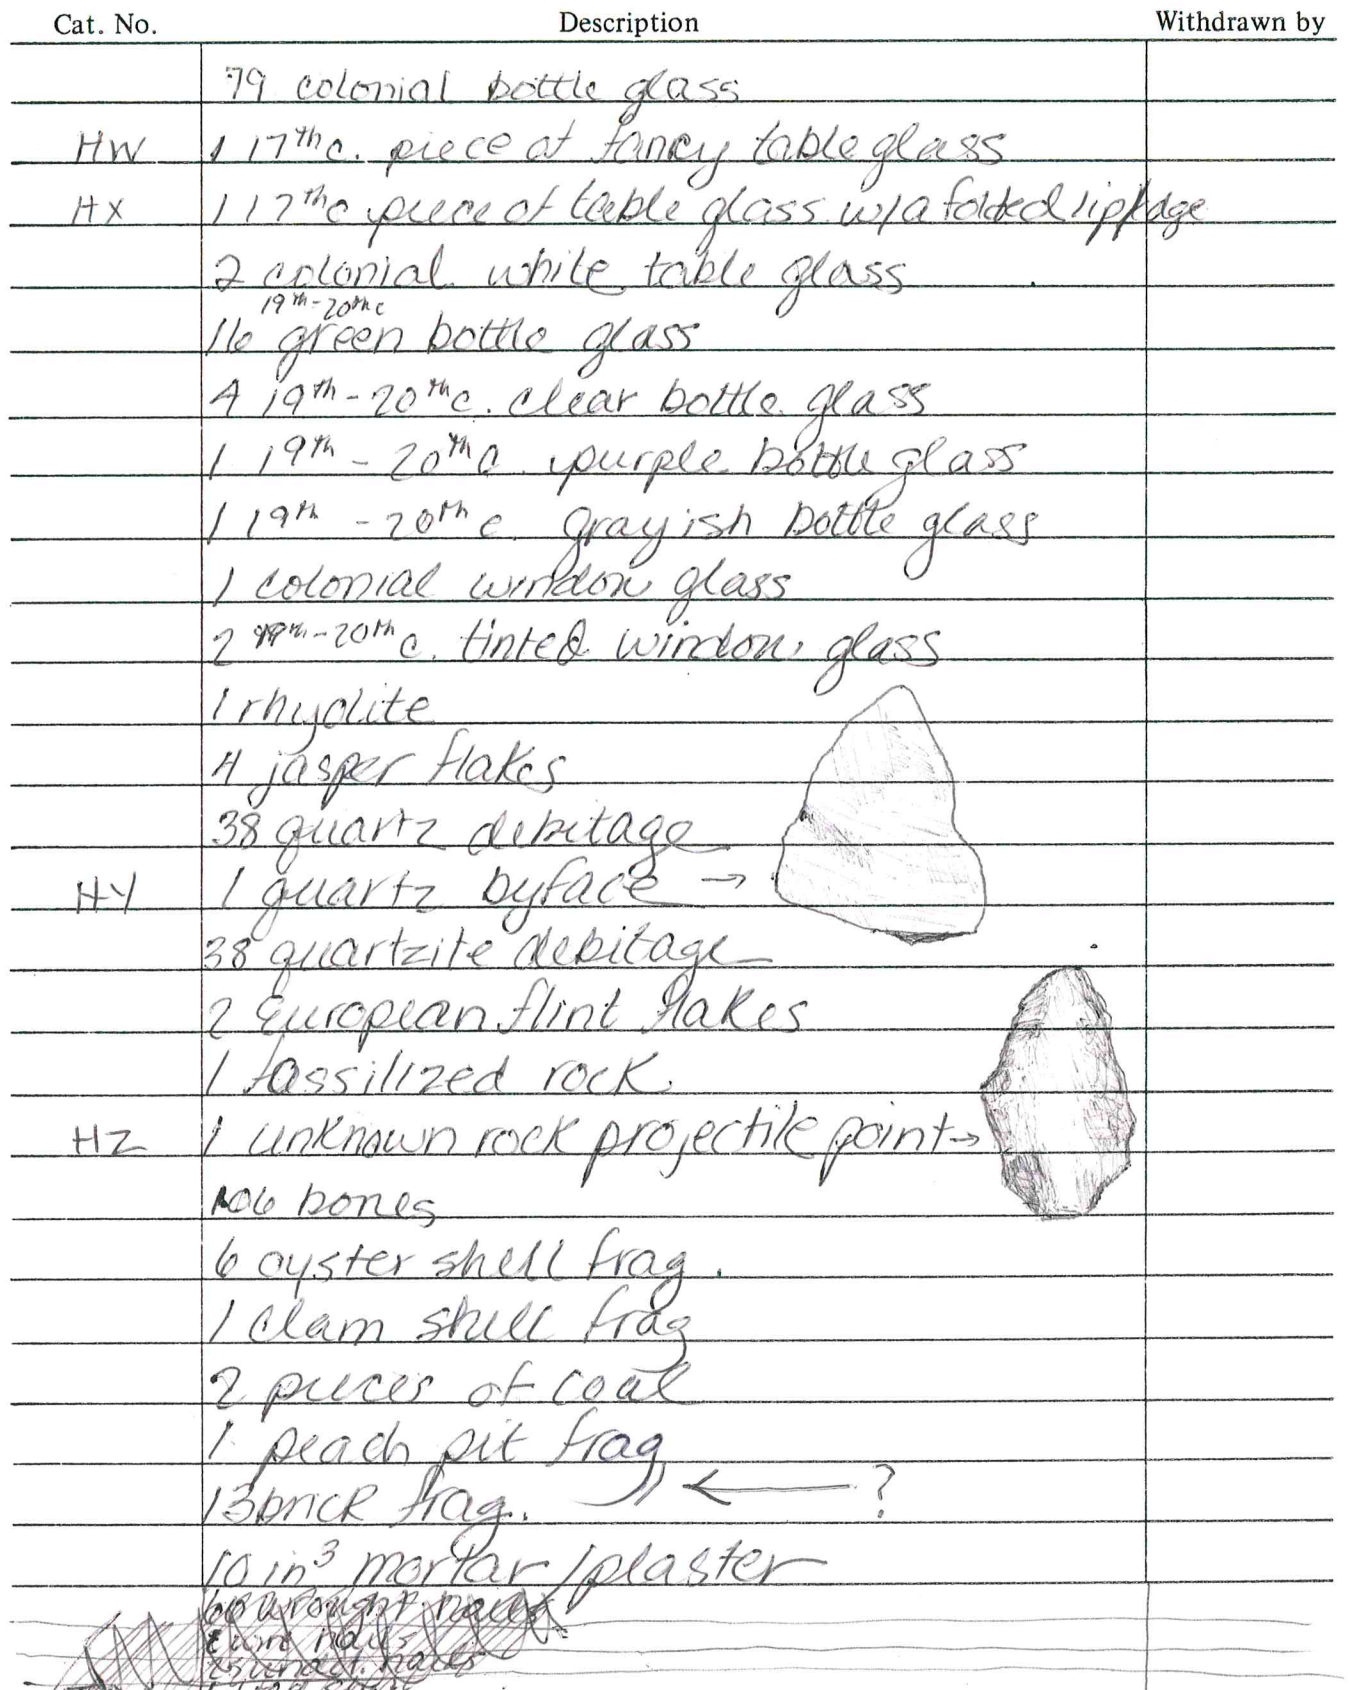 Cat. No. Description Withdrawn by
79 colonial bottle glass
HW 1 17th c. piece of fancy table glass
HX 1 17th c piece of table glass w/a folded lip/edge
2 colonial white table glass
19th-20th c
16 green bottle glass
4 19th-20th c. clear bottle glass
1 19th - 20th c. purple bottle glass
1 19th - 20th c. grayish bottle glass
1 colonial window glass
2 19th-20th c. tinted window glass
1 rhyolite
4 jasper flakes
38 quartz debitage
HY 1 quartz byface →
38 quartzite debitage
2 European flint flakes
1 fossilized rock
HZ 1 unknown rock projectile point →
106 bones
6 oyster shell frag.
1 clam shell frag
2 pieces of coal
1 peach pit frag
13 brick frag. ← ?
10 in³ mortar/plaster
wrought nails
nails
nails